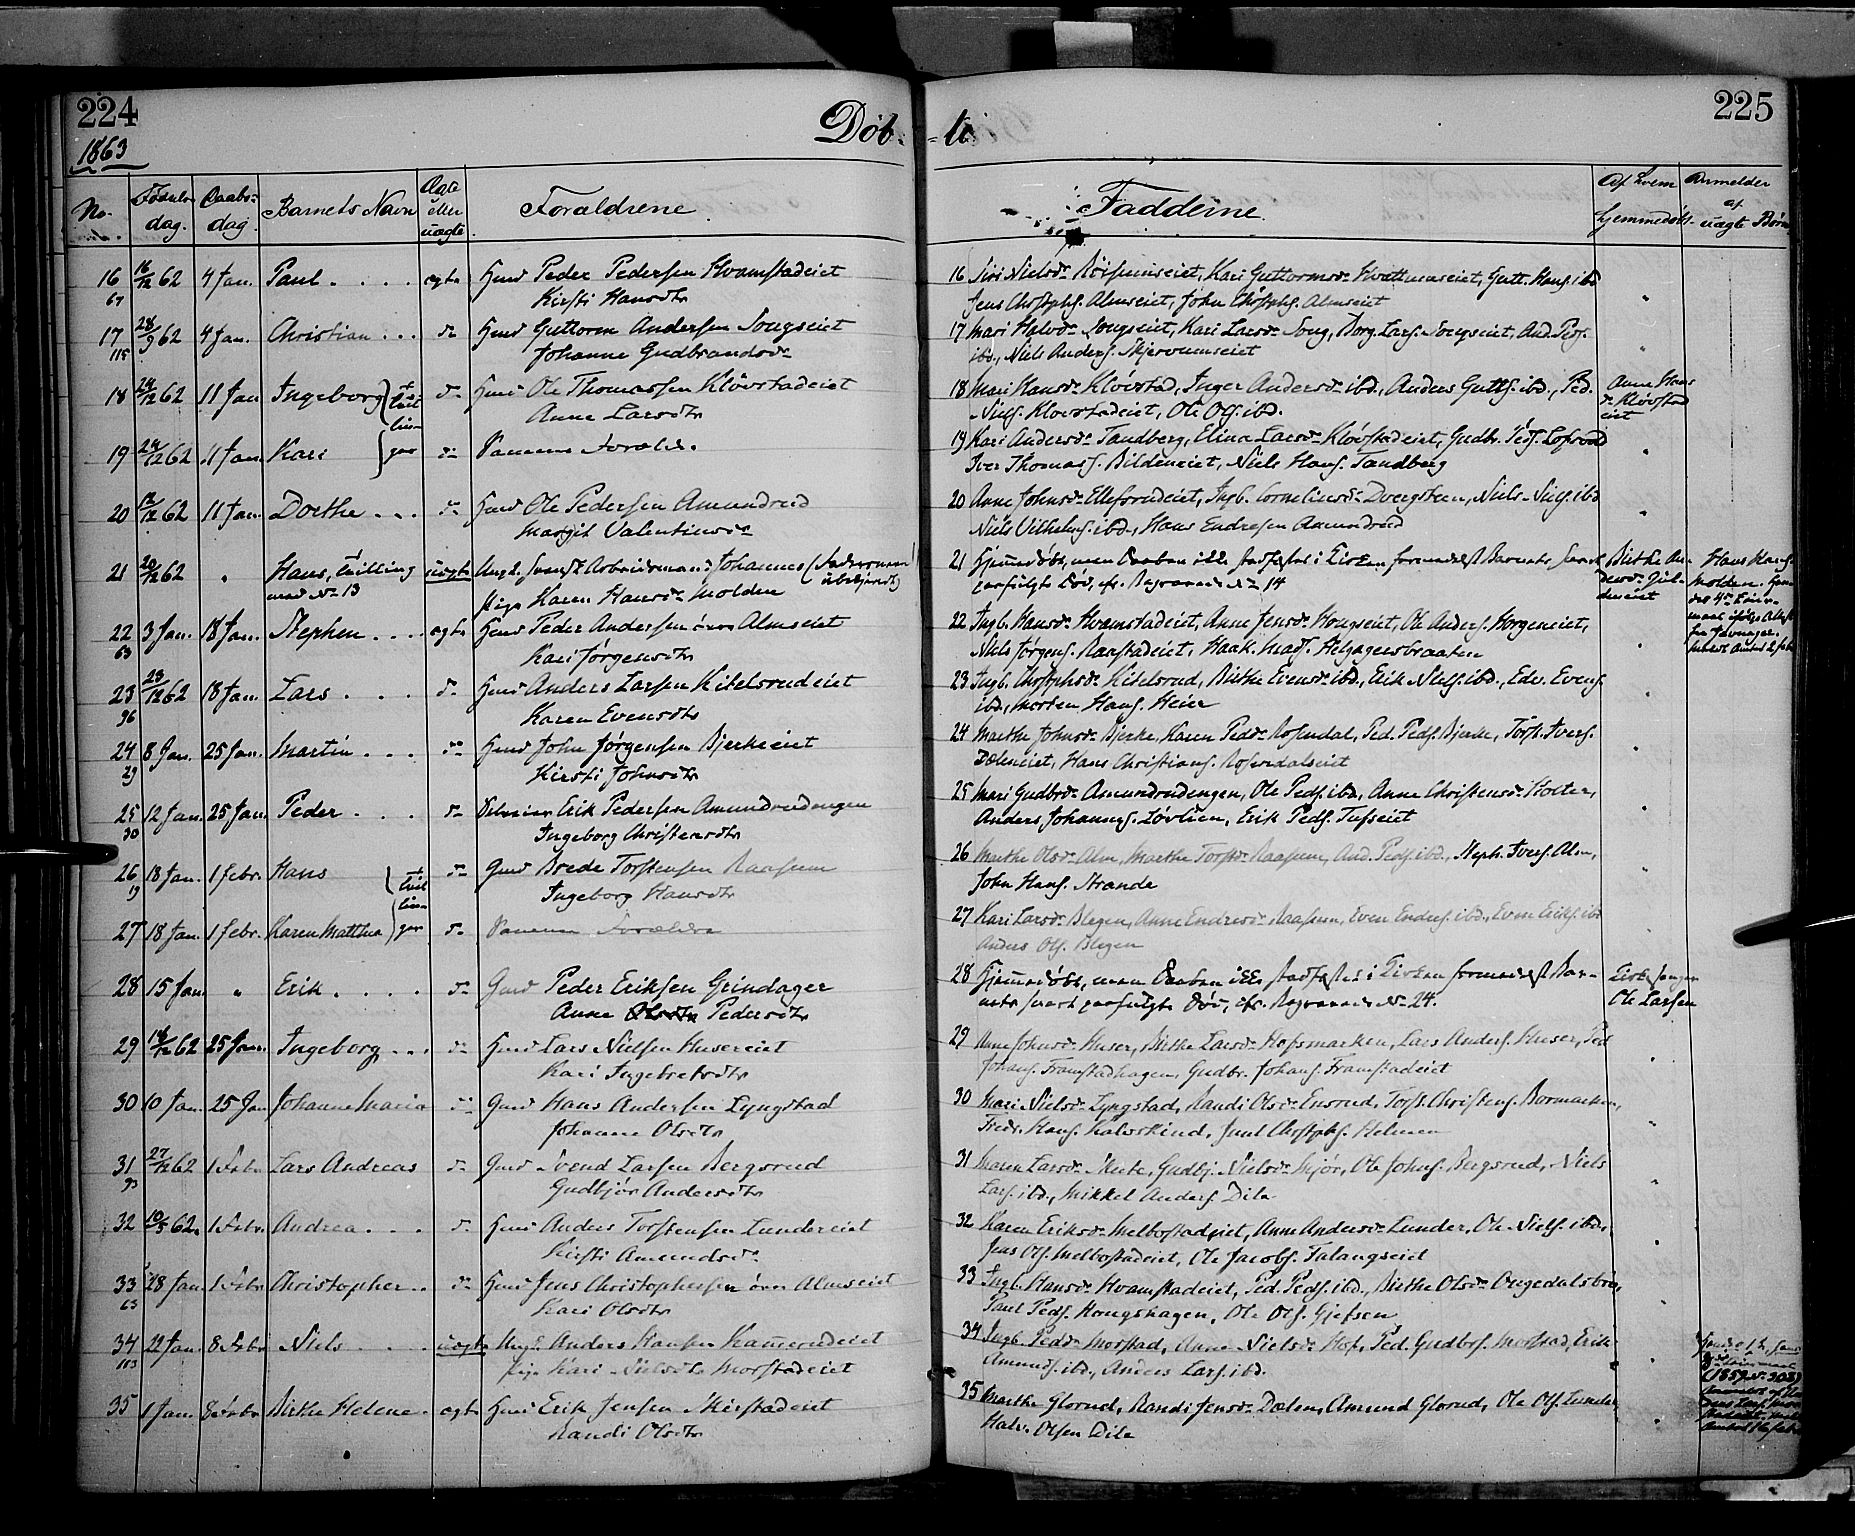 224
1863
Døb-
No.
Fødsels-
dag.
Daabs-
dag
Barnets Navn
Ægte
eller
uægte
Forældrene
16 16/12 62 4 Jan. Paul ægte Huusmd Peder Pedersen Hvamstadeiet
67 Kirsti Hansdtr
17 28/9 62 4 Jan. Christian do Huusmd Guttorm Andersen Sougseiet
115 Johanne Gudbrandsdr
18 24/12 62 11 Jan Ingeborg do Ole Thomassen Kløvstadeiet
Anne Larsdtr
19 24/12 62 11 Jan. Kari do Samme Forældr.
20 12/12 62 11 Jan. Dorthe do Ole Pedersen Amundrud
Margit Valentinsdr
21 20/12 62 " Hans, tvilling uægte Ungk. Svensk Arbeidsmand Johannes
med No 13 Pige Karen Hansdr Molden
22 3 Jan. 18 Jan. Stephen ægte Peder Andersen øvre Almseiet
63 Kari Jørgensdtr
23 23/12 62 18 Jan. Lars do Anders Larsen Kitelsrudeiet
96 Karen Evensdtr
24 8 Jan. 25 Jan. Martin do John Jørgensen Bjerkeeiet
29 Kirsti Johnsdtr
25 12 Jan. 25 Jan. Peder do Erik Pedersen Amundrudengen
30 Ingeborg Christensdtr
26 18 Jan. 1 Febr. Hans do Gmd Brede Torstensen Raasum
19 Ingeborg Hansdtr
27 18 Jan. 1 Febr. Karen Matthea do Samme Forældre
28 15 Jan. " Erik do Gmd Peder Eriksen Grindager
Anne Olsdtr Pedersdtr
29 14/12 62 25 Jan. Ingeborg do Lars Nielsen Husereiet
Kari Ingebretsdtr
30 10 Jan. 25 Jan Johanne Maria do Gmd Hans Andersen Lyngstad
Johanne Olsdtr
31 27/12 62 1 Febr Lars Andreas do Gmd Svend Larsen Bergsrud
93 Gudbjør Andersdtr
32 10/5 62 1 Febr Andrea do Anders Torstensen Lundereiet
Kirsti Amundsdr
33 18 Jan. 1 Febr. Christopher do Jens Christophersen øvre Almseiet
63 Kari Olsdtr
34 22 Jan. 8 Febr. Niels uægte Ungk. Anders Hansen Kammerudeiet
113 Pige Kari Nielsdtr Morstadeiet
35 1 Jan. 8 Febr. Birthe Helene ægte Erik Jensen Mirstadeiet
Randi Olsdtr
225
te
Fadderne
Af hvem
hjemmedøbt
Anmelder
af
uægte Børn
16 Siri Nielsdr Kari Guttormsdr Gutt. Hans. ibd
Jens Chrstphs. Almseiet, John Chrstphs. Almseiet
17 Mari Halvdr Sougseiet, Kari Larsdr Soug, Borg. Lars. Sougseiet, And. Peds.
ibd., Niels Anders. Skjervumseiet
18 Mari Hansdr Kløvstad, Inger Andersdr ibd., Anders Gutts. ibd., Ped.
Niels. Kløvstadeiet, Ole Ols. ibd.
Anne Hans
dr Kløvstad
eiet
19 Kari Andersdr Tandberg, Elina Larsdr Kløvstadeiet, Gudbr. Peds.
Iver Thomas. Bildeneiet, Niels Hans. Tandberg
20 Anne Johnsdr Ellefsrudeiet, Ingb. Corneliusdr Dvergsteen, Niels Niels. ibd
Niels Vilhelms. ibd., Hans Endresen Amundrud
21 Hjemmedøbt, men Daaben ikke stadfæstet i Kirken formedelst Barnets snart
paafulgte Død, cfr. Begravede No 14
Birthe An-
dersdr
Hans Hans.
Molden.
22 Ingb. Hansdr Hvamstadeiet, Anne Jensdr Hougseiet, Ole Anders. Horgeneiet,
Niels Jørgens. Raastadeiet, Haak. Mads. Helgagersbraaten
23 Ingb. Chrstphdr Kitelsrud, Birthe Evensdr ibd., Erik Niels. ibd., Edv. Evens.
ibd., Morten Hans. Heier
24 Marthe Johnsdr Bjerke, Karen Pedsdr Rosendal, Ped. Peds. Bjerke, Torst. Ivers.
Dæleneiet, Hans Christians. Rosendalseiet
25 Mari Gudbrdr Amundrudengen, Ole Peds. ibd., Anne Christensdr Holter,
Anders Johannes. Løvlien, Erik Peds. Tufseiet
26 Marthe Olsdr Alm, Marthe Torstdr Raasum, And. Peds. ibd., Steph. Ivers. Alm,
John Hans. Strande
27 Kari Larsdr Blegen, Anne Endresdr Raasum, Even Enders. ibd., Even Eriks. ibd
Anders Ols. Blegen
28 Hjemmedøbt, men Daaben ikke stadfæstet i Kirken formedelst Bar-
nets snart paafulgte Død, cfr. Begravede No 24.
Kirkesanger
Ole Larsen
29 Anne Johnsdr Huser, Birthe Larsdr Hofsmarken, Lars Anders. Huser, Ped
Johans. Framstadhagen, Gudbr. Johans. Framstadeiet
30 Mari Nielsdr Lyngstad, Randi Olsdr Ensrud, Torst. Christens. Bormarken,
Fredr. Hans. Kalvskind, Juul Chrstphs. Helmen
31 Maren Larsdr Gudbj. Nielsdr Mjør, Ole Johns. Bergsrud, Niels
Lars. ibd., Mikkel Anders. Dila
32 Karen Eriksdr Melbostadeiet, Anne Andersdr Lunder, Ole Niels. ibd.,
Jens Ols. Melbostadeiet, Ole Jacobs. Falangseiet
33 Ingb. Hansdr Hvamstadeiet, Ped. Peds. ibd., Birthe Olsdr
Paul Peds. Hougshagen, Ole Ols. Gjefsen
34 Ingb. Pedsdr Morstad, Anne Nielsdr Hof, Ped. Gudbrs. Morstad, Erik
Amunds. ibd., Anders Lars. ibd.
35 Marthe Glorud, Randi Jensdr Dælen, Amund Glorud, Ole Ols. Lunder,
Halv. Olsen Dila